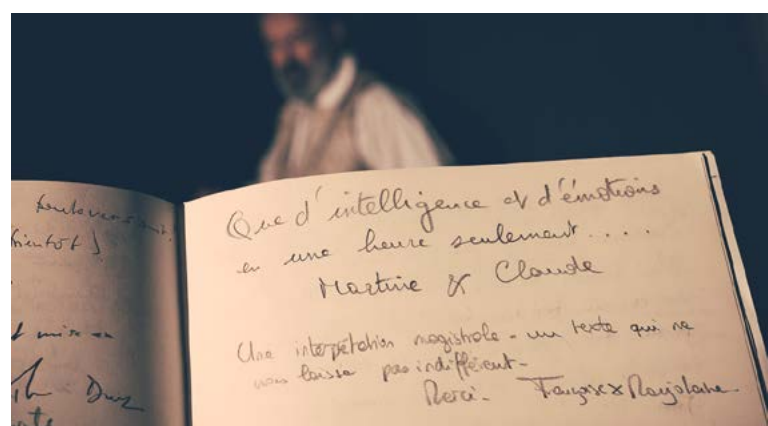 bouleversant!
bientôt)
mise en
Que d'intelligence et d'émotions
en une heure seulement....
Martine & Claude
Une interpétation magistrale - un texte qui ne
nous laisse pas indifférent -
Merci - Françoise &